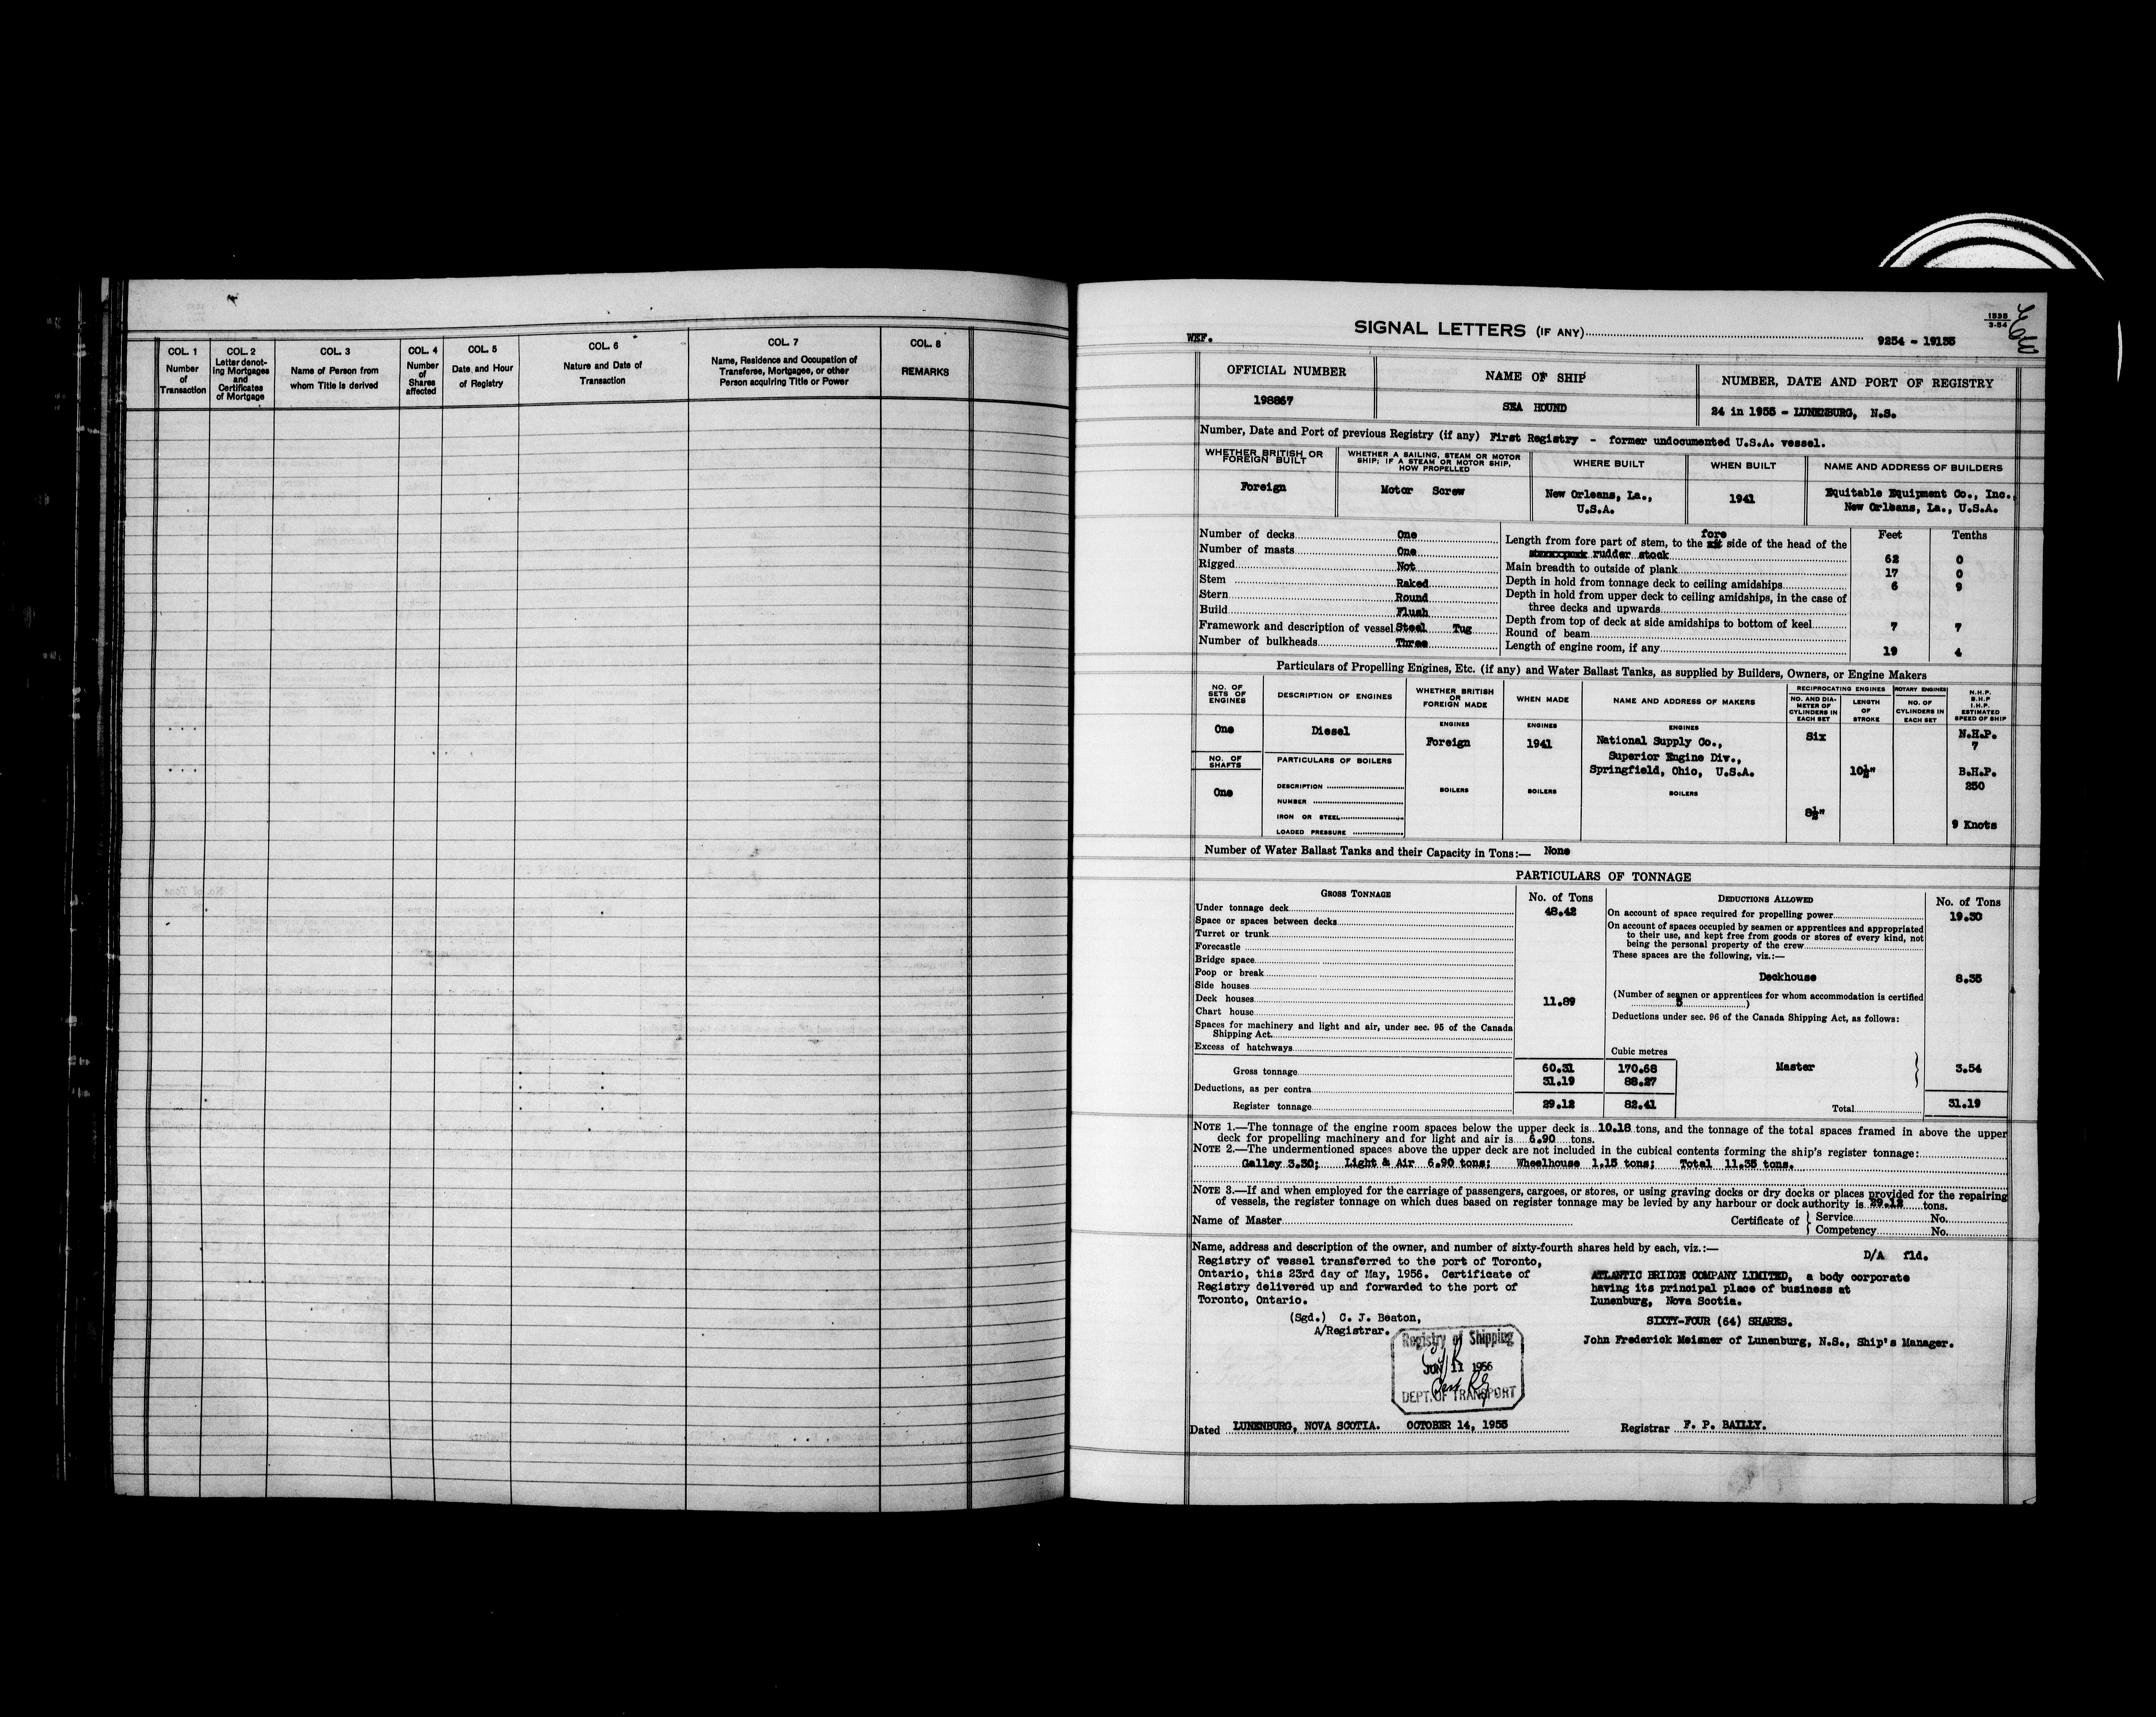 COL. 1
Number
of
Transaction
COL. 2
Letter denot-
ing Mortgages
and
Certificates
of Mortgage
COL. 3
Name of Person from
whom Title is derived
COL. 4
Number
of
Shares
affected
COL. 5
Date and Hour
of Registry
COL. 6
Nature and Date of
Transaction
COL. 7
Name, Residence and Occupation of
Transferee, Mortgagee, or other
Person acquiring Title or Power
COL. 8
REMARKS
1535
3-54
WEF.
SIGNAL LETTERS (IF ANY)
9254 - 19135
OFFICIAL NUMBER
198867
NAME OF SHIP
SEA HOUND
NUMBER, DATE AND PORT OF REGISTRY
24 in 1955 - LUNENBURG, N.S.
Number, Date and Port of previous Registry (if any) First Registry - former undocumented U.S.A. vessel.
WHETHER BRITISH OR
FOREIGN BUILT
Foreign
WHETHER A SAILING, STEAM OR MOTOR
SHIP; IF A STEAM OR MOTOR SHIP,
HOW PROPELLED
Motor Screw
WHERE BUILT
New Orleans, La.,
U.S.A.
WHEN BUILT
1941
NAME AND ADDRESS OF BUILDERS
Equitable Equipment Co., Inc.,
New Orleans, La., U.S.A.
Number of decks One
Number of masts One
Rigged Not
Stem Raked
Stern Round
Build Flush
Framework and description of vessel Steel Tug
Number of bulkheads Three
Feet Tenths
fore
Length from fore part of stem, to the side of the head of the
rudder stock 62 0
Main breadth to outside of plank 17 0
Depth in hold from tonnage deck to ceiling amidships 6 9
Depth in hold from upper deck to ceiling amidships, in the case of
three decks and upwards
Depth from top of deck at side amidships to bottom of keel 7 7
Round of beam
Length of engine room, if any 19 4
Particulars of Propelling Engines, Etc. (if any) and Water Ballast Tanks, as supplied by Builders, Owners, or Engine Makers
NO. OF
SETS OF
ENGINES
One
NO. OF
SHAFTS
One
DESCRIPTION OF ENGINES
Diesel
PARTICULARS OF BOILERS
DESCRIPTION
NUMBER
IRON OR STEEL
LOADED PRESSURE
WHETHER BRITISH
OR
FOREIGN MADE
ENGINES
Foreign
BOILERS
WHEN MADE
ENGINES
1941
BOILERS
NAME AND ADDRESS OF MAKERS
ENGINES
National Supply Co.,
Superior Engine Div.,
Springfield, Ohio, U.S.A.
BOILERS
RECIPROCATING ENGINES
NO. AND DIA-
METER OF
CYLINDERS IN
EACH SET
Six
8½"
LENGTH
OF
STROKE
10½"
ROTARY ENGINES
NO. OF
CYLINDERS IN
EACH SET
N.H.P.
B.H.P
I.H.P.
ESTIMATED
SPEED OF SHIP
N.H.P.
7
B.H.P.
250
9 Knots
Number of Water Ballast Tanks and their Capacity in Tons:— None
PARTICULARS OF TONNAGE
GROSS TONNAGE No. of Tons
Under tonnage deck 48.42
Space or spaces between decks
Turret or trunk
Forecastle
Bridge space
Poop or break
Side houses
Deck houses 11.89
Chart house
Spaces for machinery and light and air, under sec. 95 of the Canada
Shipping Act
Excess of hatchways
Cubic metres
Gross tonnage 60.31 170.68
Deductions, as per contra 31.19 88.27
Register tonnage 29.12 82.41
DEDUCTIONS ALLOWED No. of Tons
On account of space required for propelling power 19.30
On account of spaces occupied by seamen or apprentices and appropriated
to their use, and kept free from goods or stores of every kind, not
being the personal property of the crew
These spaces are the following, viz.:—
Deckhouse 8.35
(Number of seamen or apprentices for whom accommodation is certified
5 )
Deductions under sec. 96 of the Canada Shipping Act, as follows:
Master 3.54
Total 31.19
NOTE 1.—The tonnage of the engine room spaces below the upper deck is 10.18 tons, and the tonnage of the total spaces framed in above the upper
deck for propelling machinery and for light and air is 6.90 tons.
NOTE 2.—The undermentioned spaces above the upper deck are not included in the cubical contents forming the ship's register tonnage:
Galley 3.30; Light & Air 6.90 tons; Wheelhouse 1.15 tons; Total 11.35 tons.
NOTE 3.—If and when employed for the carriage of passengers, cargoes, or stores, or using graving docks or dry docks or places provided for the repairing
of vessels, the register tonnage on which dues based on register tonnage may be levied by any harbour or dock authority is 29.12 tons.
Name of Master
Certificate of Service No.
Competency No.
Name, address and description of the owner, and number of sixty-fourth shares held by each, viz.:—
D/A fld.
Registry of vessel transferred to the port of Toronto,
Ontario, this 23rd day of May, 1956. Certificate of
Registry delivered up and forwarded to the port of
Toronto, Ontario.
(Sgd.) C. J. Beaton,
A/Registrar.
ATLANTIC BRIDGE COMPANY LIMITED, a body corporate
having its principal place of business at
Lunenburg, Nova Scotia.
SIXTY-FOUR (64) SHARES.
John Frederick Meisner of Lunenburg, N.S., Ship's Manager.
Registry of Shipping
JUN 11 1956
DEPT. OF TRANSPORT
Dated LUNENBURG, NOVA SCOTIA. OCTOBER 14, 1955
Registrar F. P. BAILLY.